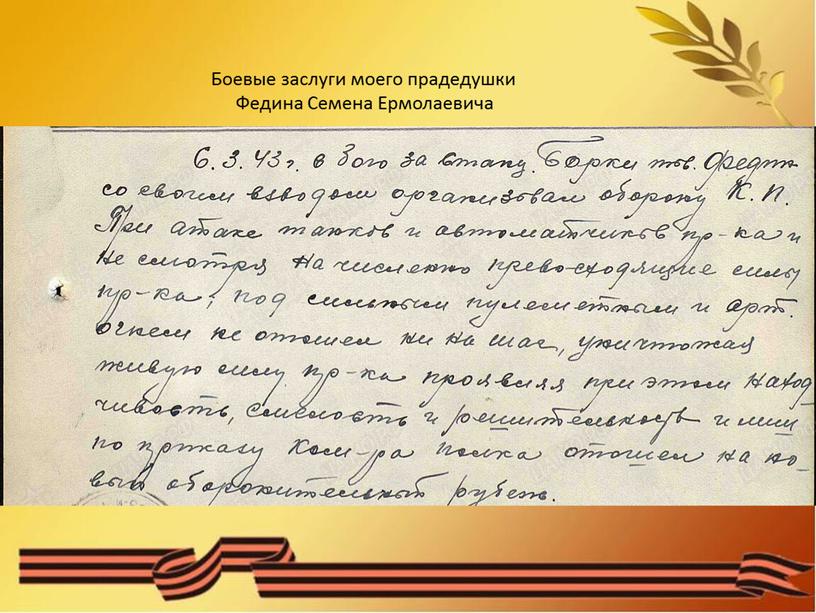 Боевые заслуги моего прадедушки
Федина Семена Ермолаевича
6.3.43 г. в бою за станц. Борки тов. Федин
со своим взводом организовал оборону К.П.
При атаке танков и автоматчиков пр-ка и
не смотря на численно превосходящие силы
пр-ка, под сильным пулеметным и арт.
огнем не отошел ни на шаг, уничтожая
живую силу пр-ка проявляя при этом наход
чивость, смелость и решительность и лиш
по приказу Ком-ра полка отошел на но-
вый оборонительный рубеж.